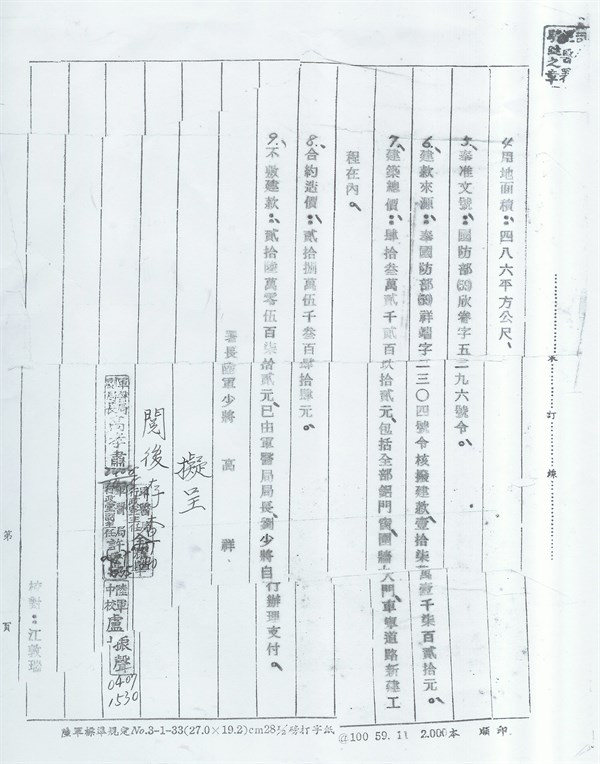 駿進之章
裝訂線
4.用地面積：四八六平方公尺、
5.奉准文號：國防部(59)欣眷字五二九六號令。
6.建款來源：奉國防部(59)祥端字二三〇四號令核撥建款壹拾柒萬壹千柒百貳拾元。
7.建築總價：肆拾叁萬貳千貳百玖拾貳元、包括全部鋁門窗圍牆大門車寮道路新建工
程在內。
8.合約造價：貳拾捌萬伍千叁百肆拾元。
9.不敷建款：貳拾陸萬零伍百柒拾貳元、已由軍醫局局長劉少將自行辦理支付。
署長陸軍少將 高 祥
擬呈
閱後存查
陸軍中校盧振聲
0407
1530
校對：江敦瑞
第 頁
陸軍標準規定No.3-1-33(27.0×19.2)cm28½磅打字紙 @100 59. 11 2.000本 順印